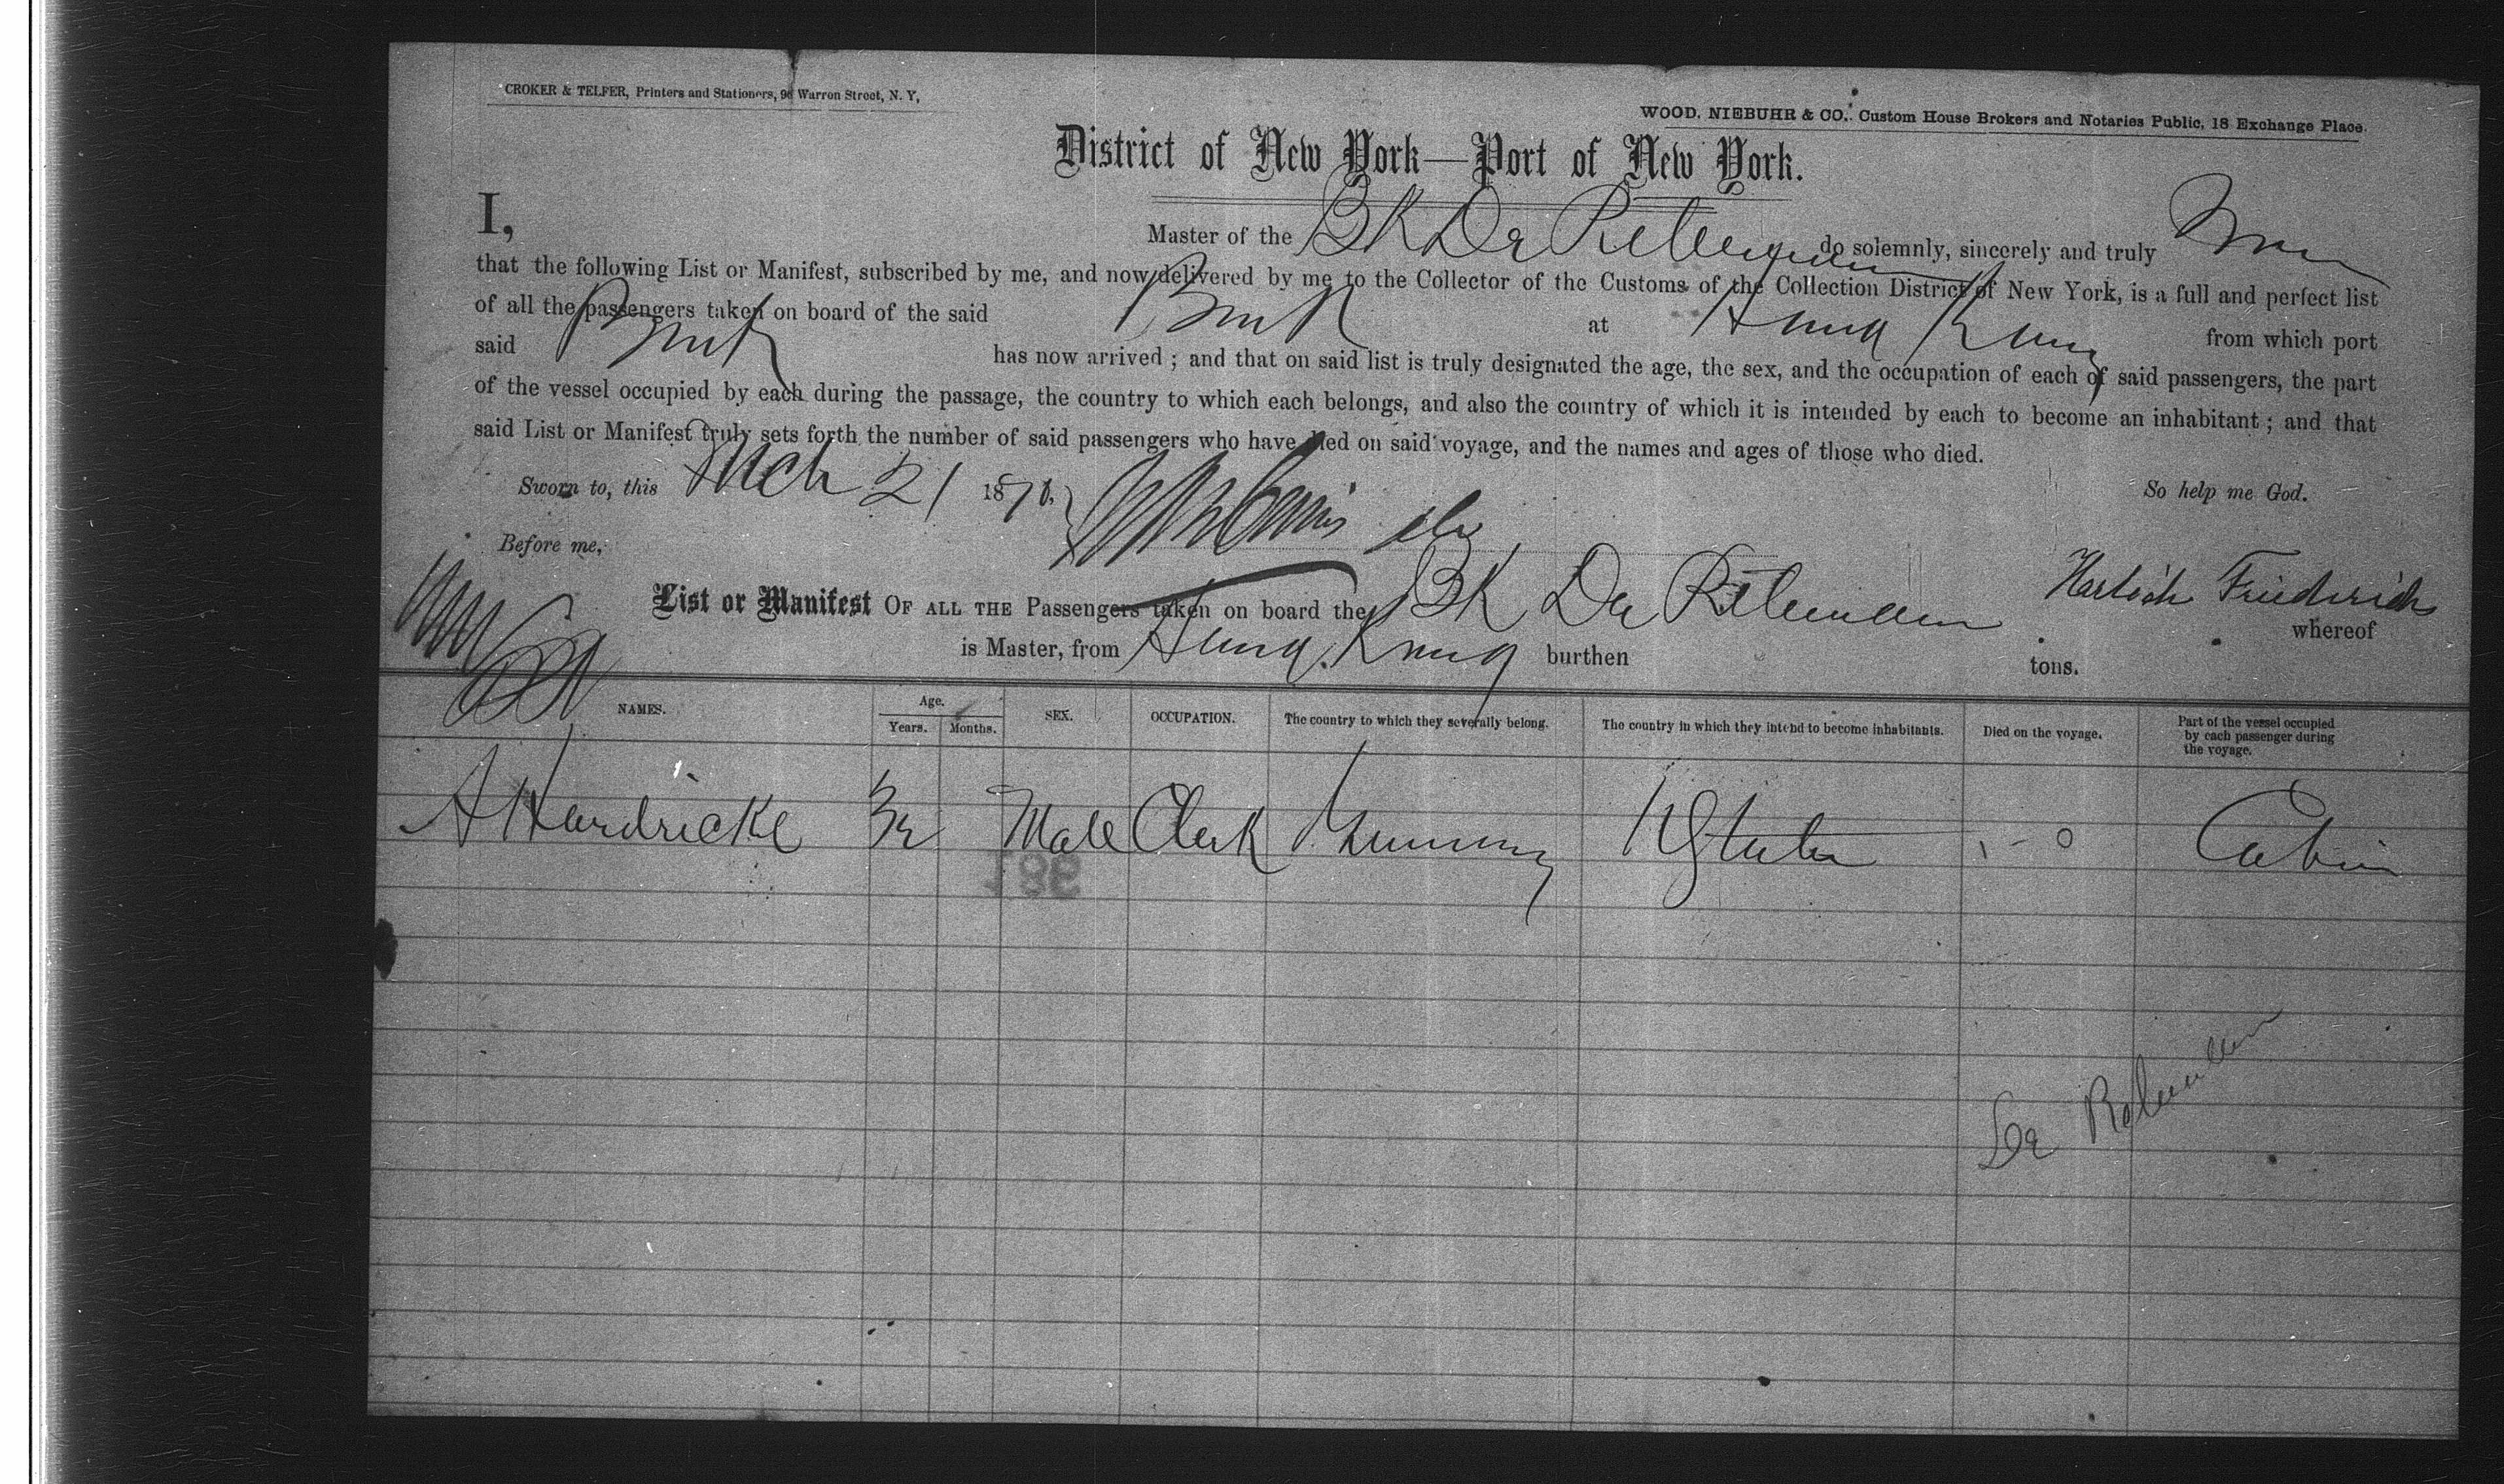 CROKER & TELFER, Printers and Stationers, 98 Warren Street, N. Y,
WOOD, NIEBUHR & CO. Custom House Brokers and Notaries Public, 18 Exchange Place.
District of New York—Port of New York.
I, Master of the Bk do solemnly, sincerely and truly
that the following List or Manifest, subscribed by me, and now delivered by me to the Collector of the Customs of the Collection District of New York, is a full and perfect list
of all the passengers taken on board of the said Bark at Hong Kong from which port
said Bark has now arrived ; and that on said list is truly designated the age, the sex, and the occupation of each of said passengers, the part
of the vessel occupied by each during the passage, the country to which each belongs, and also the country of which it is intended by each to become an inhabitant ; and that
said List or Manifest truly sets forth the number of said passengers who have died on said voyage, and the names and ages of those who died.
Sworn to, this Mch 21 187 So help me God.
Before me,
List or Manifest OF ALL THE Passengers taken on board the Bk Friedrichs whereof
is Master, from Hong Kong burthen tons.
NAMES. Age. Years. Months. SEX. OCCUPATION. The country to which they severally belong. The country in which they intend to become inhabitants. Died on the voyage. Part of the vessel occupied by each passenger during the voyage.
A Hardricke Male Clerk Germany UStates Cabin